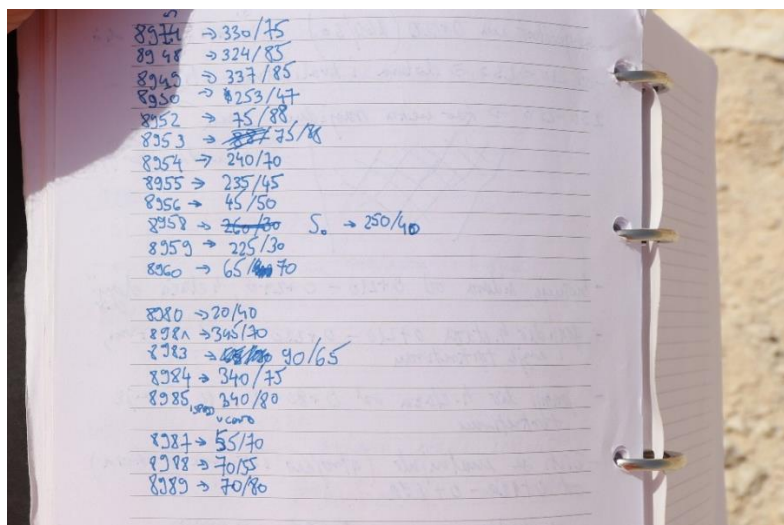 → 330/75
8948 → 324/85
8949 → 337/85
8950 → 253/47
8952 → 75/88
8953 → 75/88
8954 → 240/70
8955 → 235/45
8956 → 45/50
8958 → 260/30 S₀ → 250/40
8959 → 225/30
8960 → 65/70
8980 → 20/40
8981 → 345/70
8983 → 90/65
8984 → 340/75
8985 340/80
8987 → 55/70
8988 → 70/55
8989 → 70/80